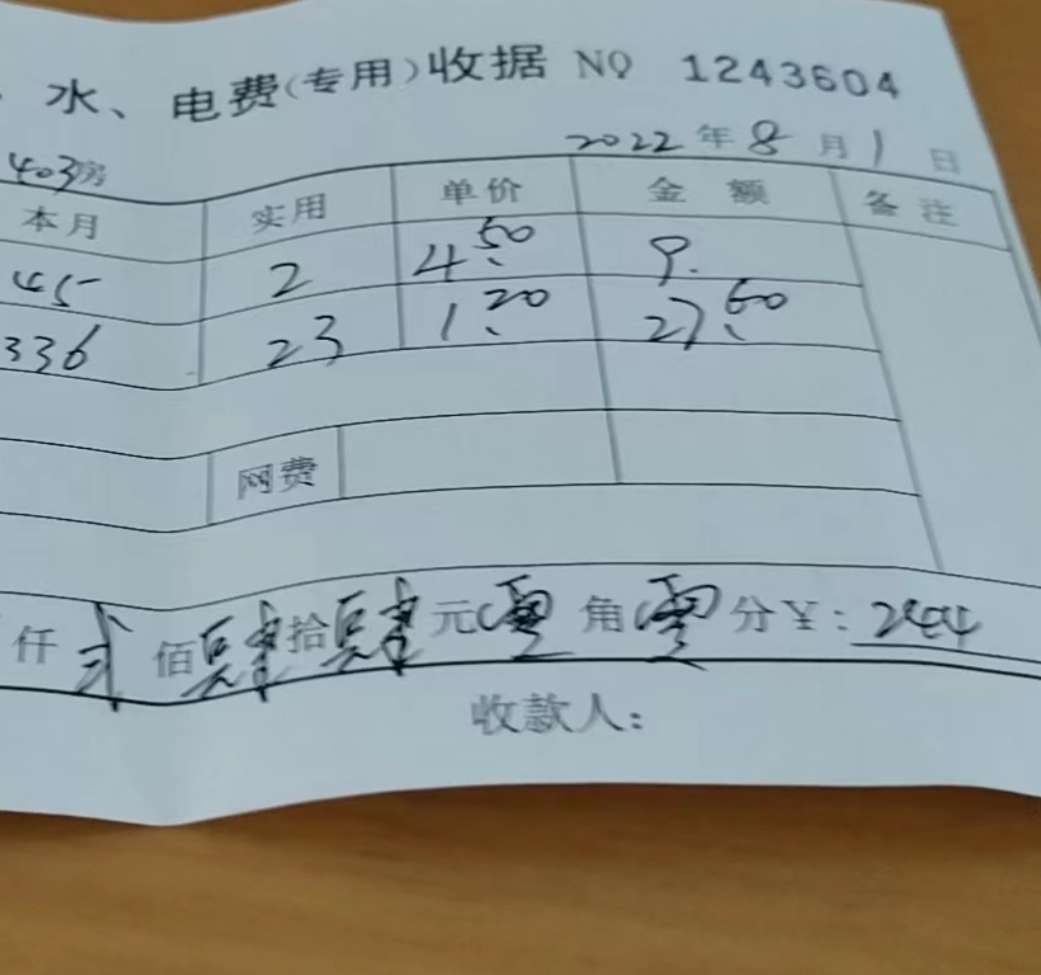 水、电费(专用)收据 NO 1243604
2022年8月1日
403房
本月 实用 单价 金额 备注
45 2 4.50 9.
336 23 1.20 27.60
网费
仟贰佰肆拾肆元零角零分¥:244
收款人: